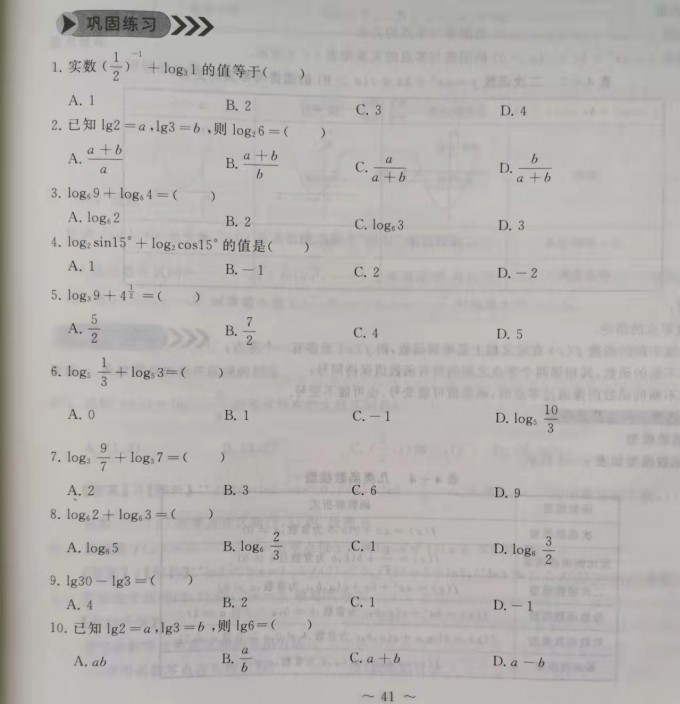 巩固练习
1. 实数 (1/2)^-1 + log₃1 的值等于(    )
A. 1    B. 2    C. 3    D. 4
2. 已知 lg2=a,lg3=b,则 log₂6=(    )
A. (a+b)/a    B. (a+b)/b    C. a/(a+b)    D. b/(a+b)
3. log₆9+log₆4=(    )
A. log₆2    B. 2    C. log₆3    D. 3
4. log₂sin15°+log₂cos15°的值是(    )
A. 1    B. -1    C. 2    D. -2
5. log₃9+4^(1/2)=(    )
A. 5/2    B. 7/2    C. 4    D. 5
6. log₅ 1/3 + log₅3=(    )
A. 0    B. 1    C. -1    D. log₅ 10/3
7. log₃ 9/7 + log₃7=(    )
A. 2    B. 3    C. 6    D. 9
8. log₆2+log₆3=(    )
A. log₆5    B. log₆ 2/3    C. 1    D. log₆ 3/2
9. lg30-lg3=(    )
A. 4    B. 2    C. 1    D. -1
10. 已知 lg2=a,lg3=b,则 lg6=(    )
A. ab    B. a/b    C. a+b    D. a-b
~ 41 ~